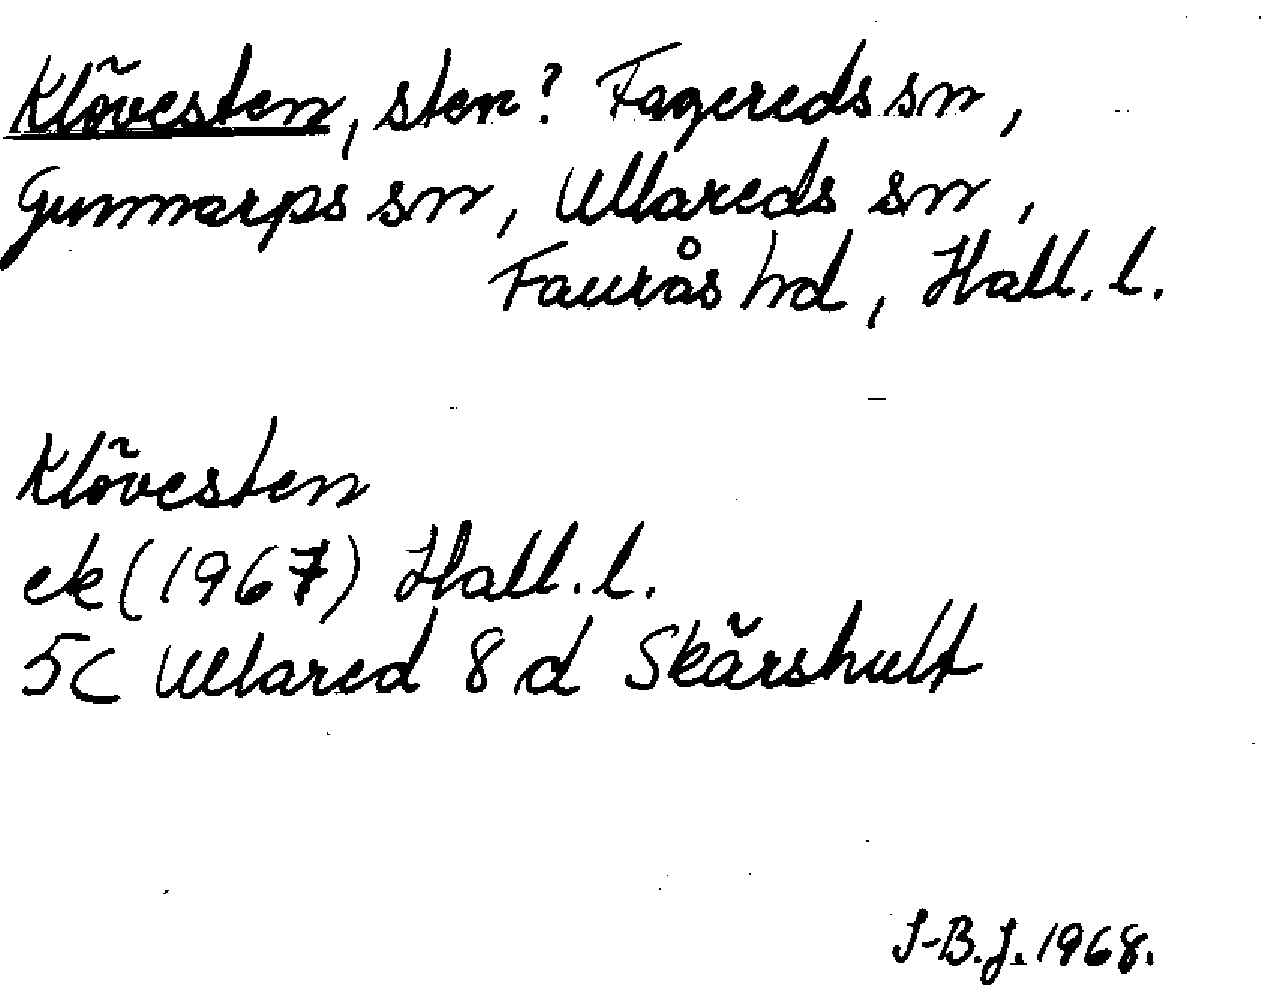 Klövesten, sten? Fagereds sn,
Gunnarps sn, Ullareds sn,
Faurås hd, Hall. l.
Klövesten
ek (1967) Hall. l.
5C Ullared 8 d Skärshult
I-B.J. 1968.